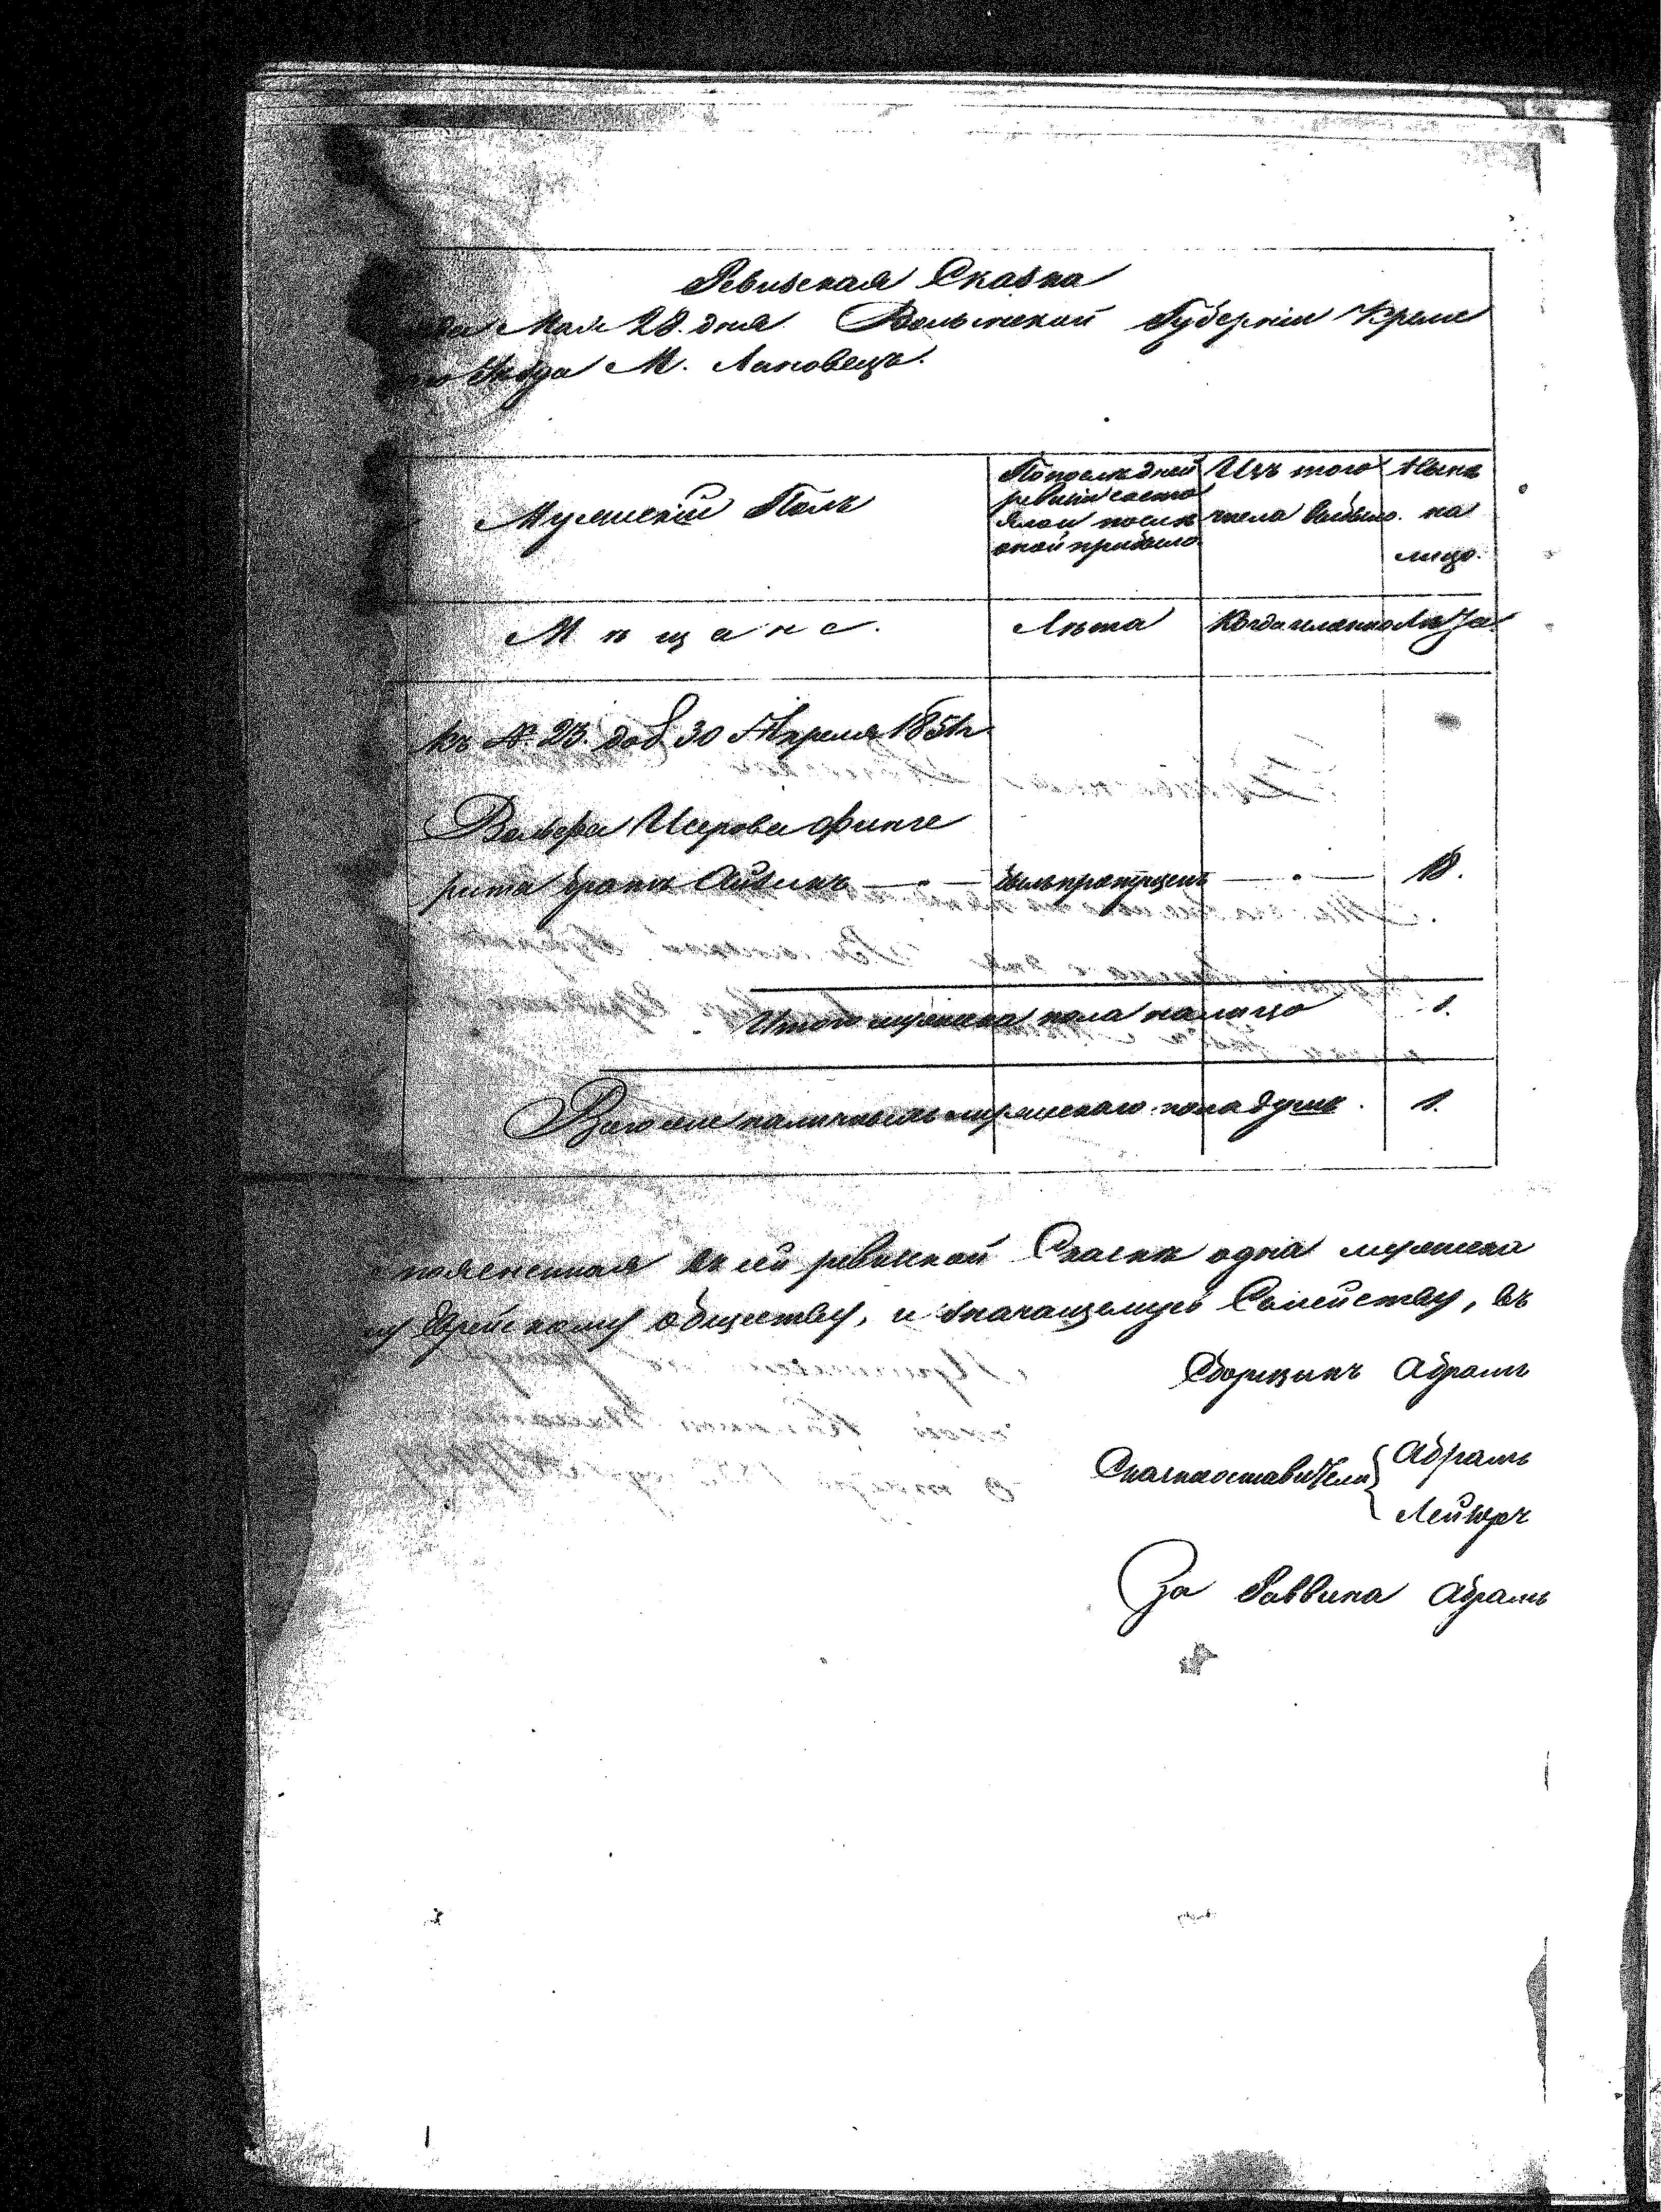 Ревизская Сказка
да Мая 28. дня Волынской Губернiи Креме
го Уѣзда М. Лановецъ.
Мужескiй Полъ
По послѣдней
ревизiи состо
ялои послѣ
оной прибыло
Изъ того
числа выбыло.
Нынѣ
на
лицо.
Мѣщане.
Лѣта
Когда именно
Лѣта
къ №. 23. доб. 30 Апреля 1851г
Вольфа Исерова Финге
рита братъ Айзикъ — былъ пропущенъ — 18.
Итого мужеска пола налицо 1.
Всего же наличныхъ мужескаго пола душъ. 1.
поясненная въ сей ревизкой Сказкѣ одна мужеска
му Еврейскому обществу, и значащемусь Семейству, въ
Сборщикъ Абрамъ
Сказкоставители
Абрамъ
Лейзеръ
За Раввина Абрамъ